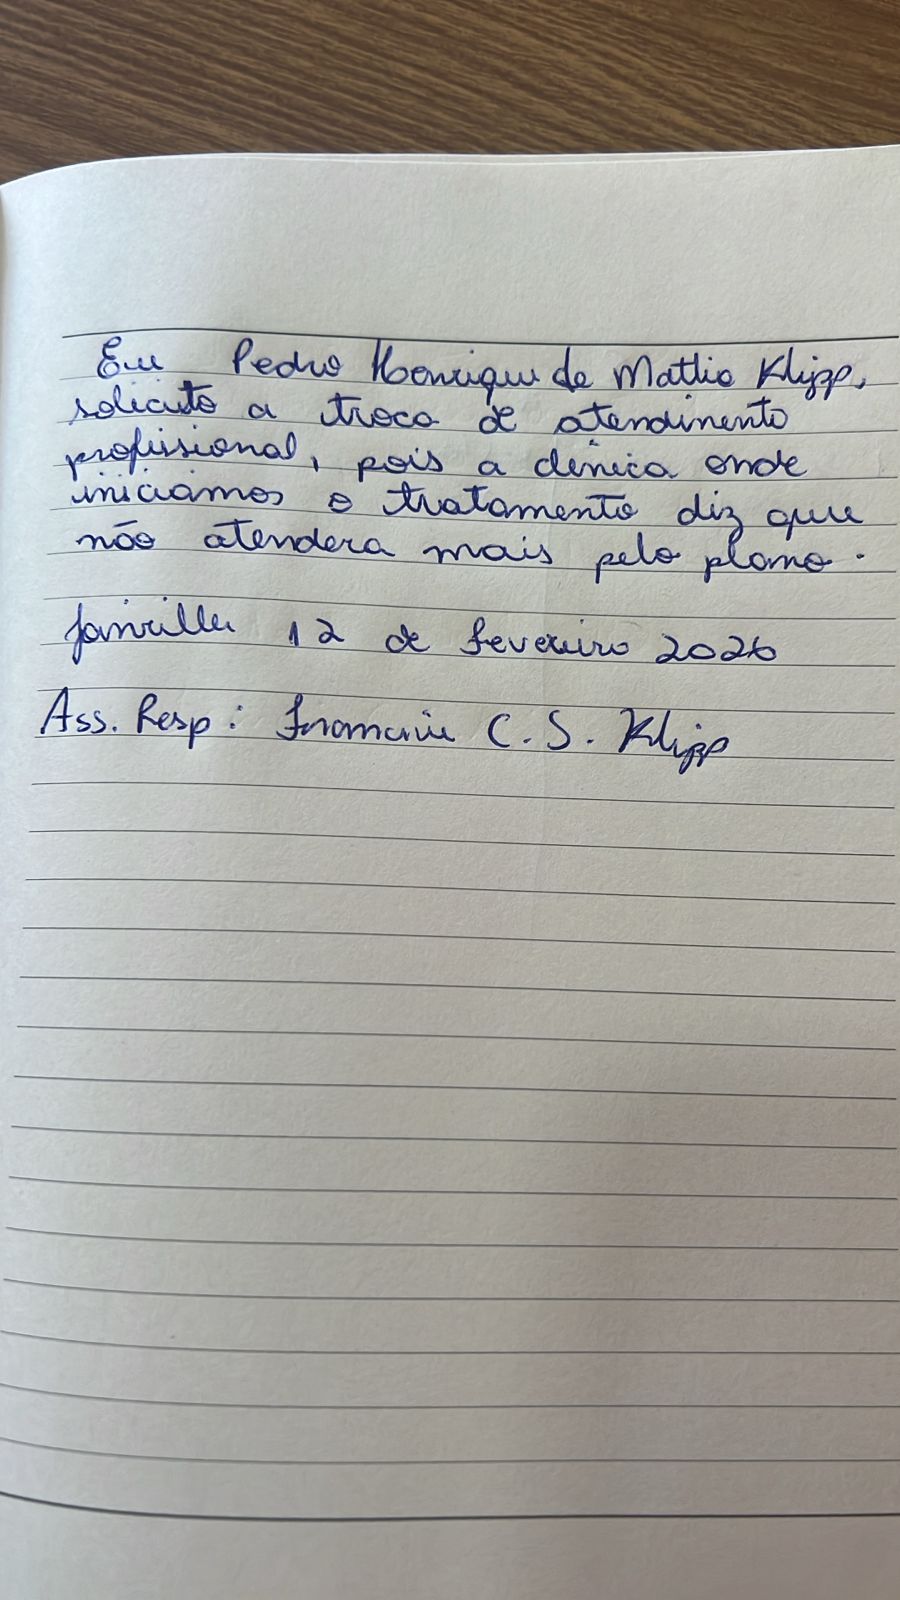 Eu Pedro Henrique de Mattio Klipp,
solicito a troca de atendimento
profissional, pois a clinica onde
iniciamos o tratamento diz que
não atendera mais pelo plano.
Joinville 12 de fevereiro 2026
Ass. Resp: C. S. Klipp